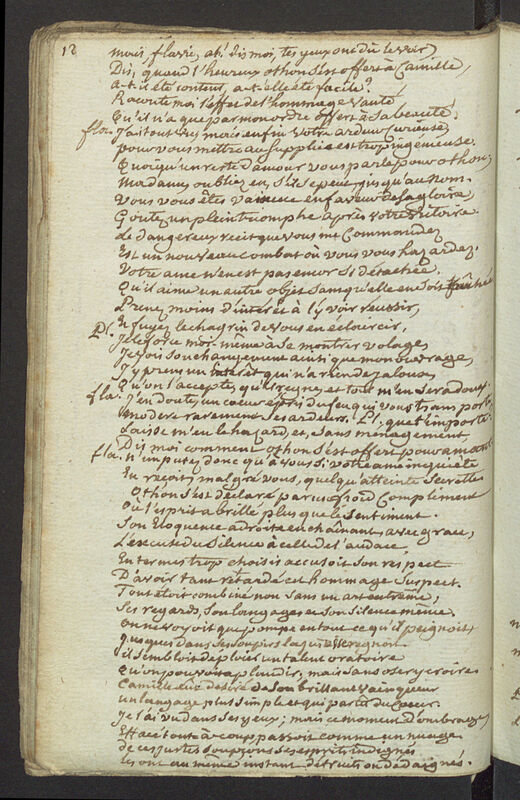 12
mais flavie, ah! dis moi, tes yeux ont dû le voir
Dis, quand l'heureux othon s'est offert à Camille,
a-t-il été content, a-t-elle été facile?
Raconte moi l'effet de l'hommage vanté
Qu'il n'a que par mon ordre offert à sa beauté.
fla. J'ai tout vu mais enfin votre ardeur Curieuse
pour vous mettre au Supplice est trop ingénieuse.
Quoiqu'un reste d'amour vous parle pour othon,
Madame, oubliez en, s'il se peut jusqu'au Nom.
Vous vous êtes vaincue en faveur de sa gloire,
Goutez un plein triomphe après votre Victoire
le dangereux recit que vous me Commandez
Est un nouveau combat où vous vous hazardez.
Votre ame n'en est pas encor si détachée
Qu'il aime un autre objet sans qu'elle en soit touchée
Prenez moins d'intérêt à l'y voir réussir,
Et fuyez le chagrin de vous en éclaircir,
Pl. Je le force moi-même à se montrer volage,
Je vois son changement ainsi que mon ouvrage,
J'y prens un interêt qui n'a rien de jaloux,
Qu'on l'accepte, qu'il regne, et tout m'en sera doux.
fla. J'en doute, un coeur épris du feu qui vous transporte
modere rarement ses ardeurs. Pl. que t'importe
Laisse m'en le hazard, et, sans ménagement
Dis moi comment othon s'est offert pour amant
fla. n'imputez donc qu'à vous si votre ame inquiète
En reçoit, malgré vous, quelqu'atteinte Secrette
Othon s'est déclaré par un froid Compliment
Où l'esprit a brillé plus que le Sentiment.
Son Eloquence adroite enchaînant, avec grace,
L'excuse du Silence à celle de l'audace
En termes trop choisis accusoit son respect
D'avoir tant retardé cet hommage Suspect.
Tout étoit combiné non sans un art extrême,
Ses regards, son langage et son Silence même.
on ne voyoit que pompe en tout ce qu'il peignoit,
Jusques dans ses soupirs la justesse régnoit
il sembloit déploier un talent oratoire
Qu'on pouvoit applaudir, mais sans oser y croire
Camille eût désiré de son brillant Vainqueur
un langage plus simple et qui partit du Coeur.
Je l'ai vu dans ses yeux; mais ce moment d'ombrage,
Effacé tout à coup, passoit comme un nuage
de ces justes soupçons ses esprits indignés
les ont au même instant détruits ou dédaignés.